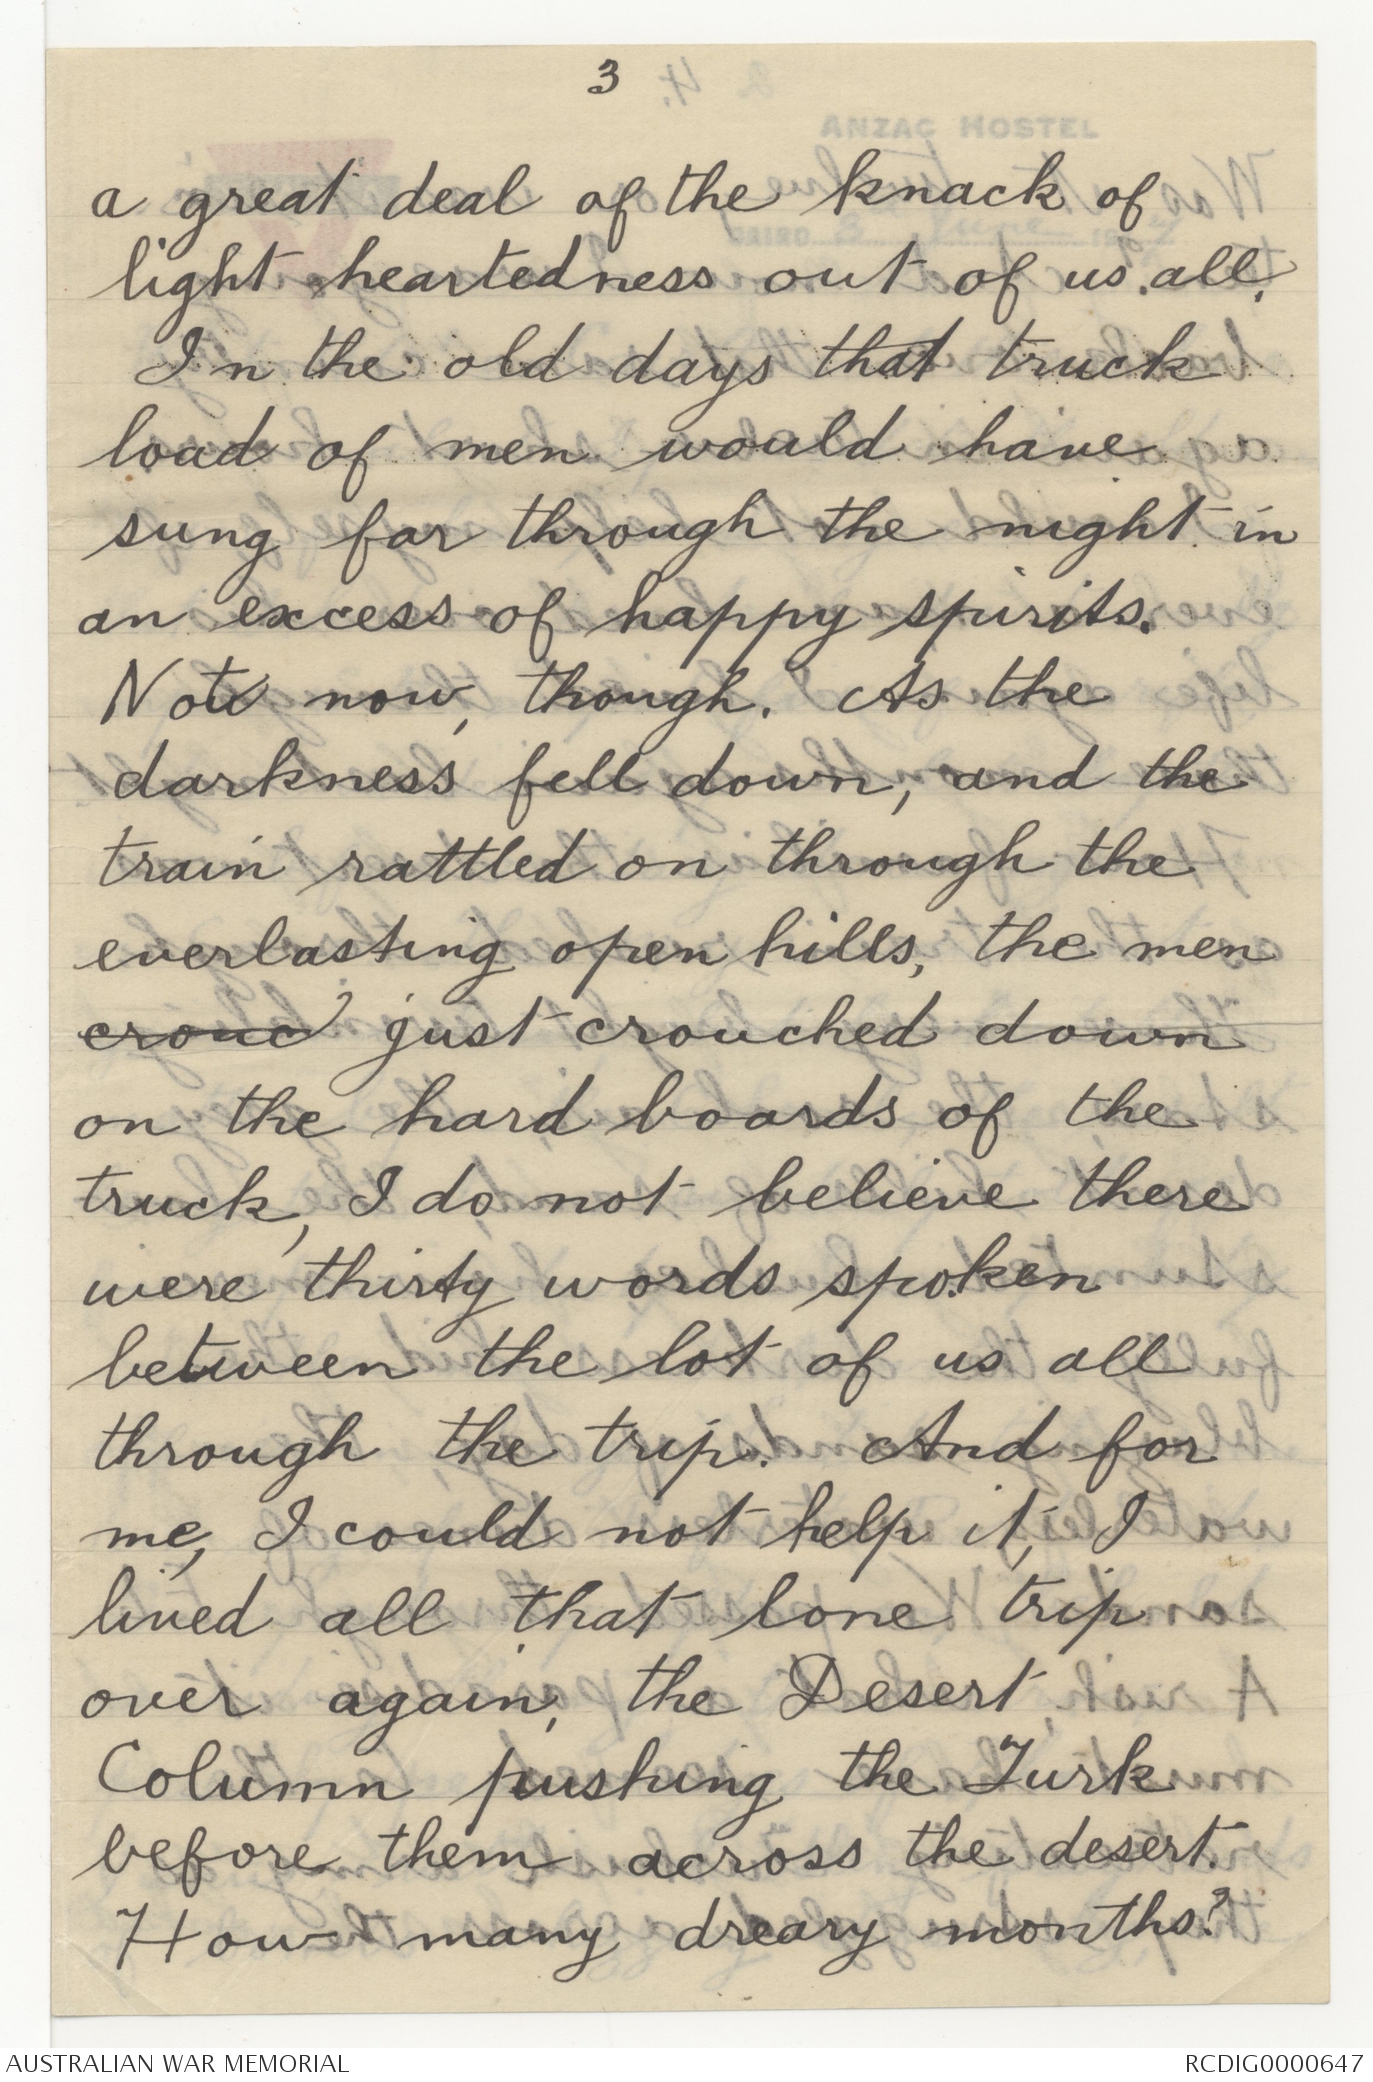 3
ANZAC HOSTEL
a great deal of the knack of
light heartedness out of us all.
In the old days that truck
load of men would have
sung far through the night in
an excess of happy spirits.
Not now, though. As the
darkness fell down, and the
train rattled on through the
everlasting open hills, the men
crouc just crouched down
on the hard boards of the
truck, I do not believe there
were thirty words spoken
between the lot of us all
through the trip. And for
me, I could not help it, I
lived all that lone trip
over again, the Desert
Column pushing the Turk
before them across the desert.
How many dreary months?
AUSTRALIAN WAR MEMORIAL
RCDIG0000647